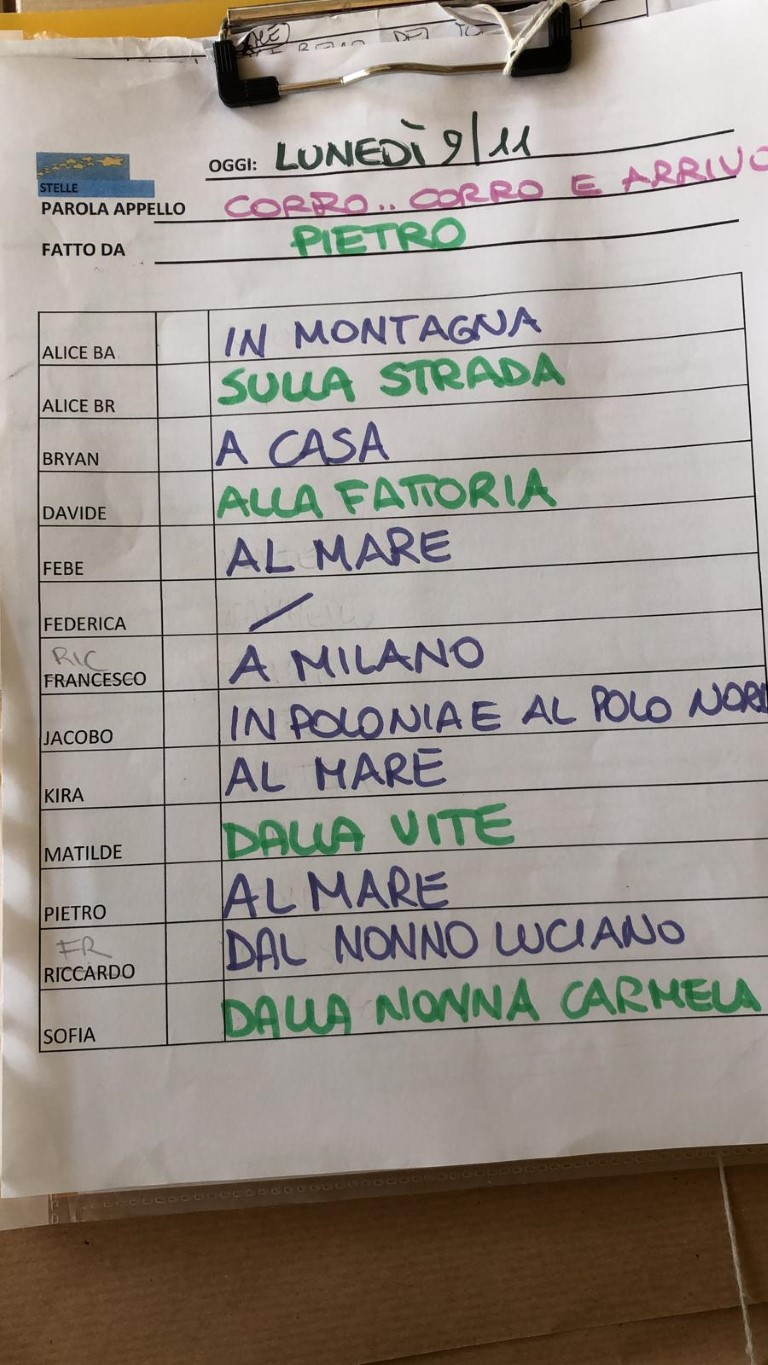 STELLE
OGGI: LUNEDÌ 9/11
PAROLA APPELLO CORRO.. CORRO E ARRIVO
FATTO DA PIETRO
ALICE BA IN MONTAGNA
ALICE BR SULLA STRADA
BRYAN A CASA
DAVIDE ALLA FATTORIA
FEBE AL MARE
FEDERICA /
RIC
FRANCESCO A MILANO
JACOBO IN POLONIA E AL POLO NORD
KIRA AL MARE
MATILDE DALLA VITE
PIETRO AL MARE
FR
RICCARDO DAL NONNO LUCIANO
SOFIA DALLA NONNA CARMELA